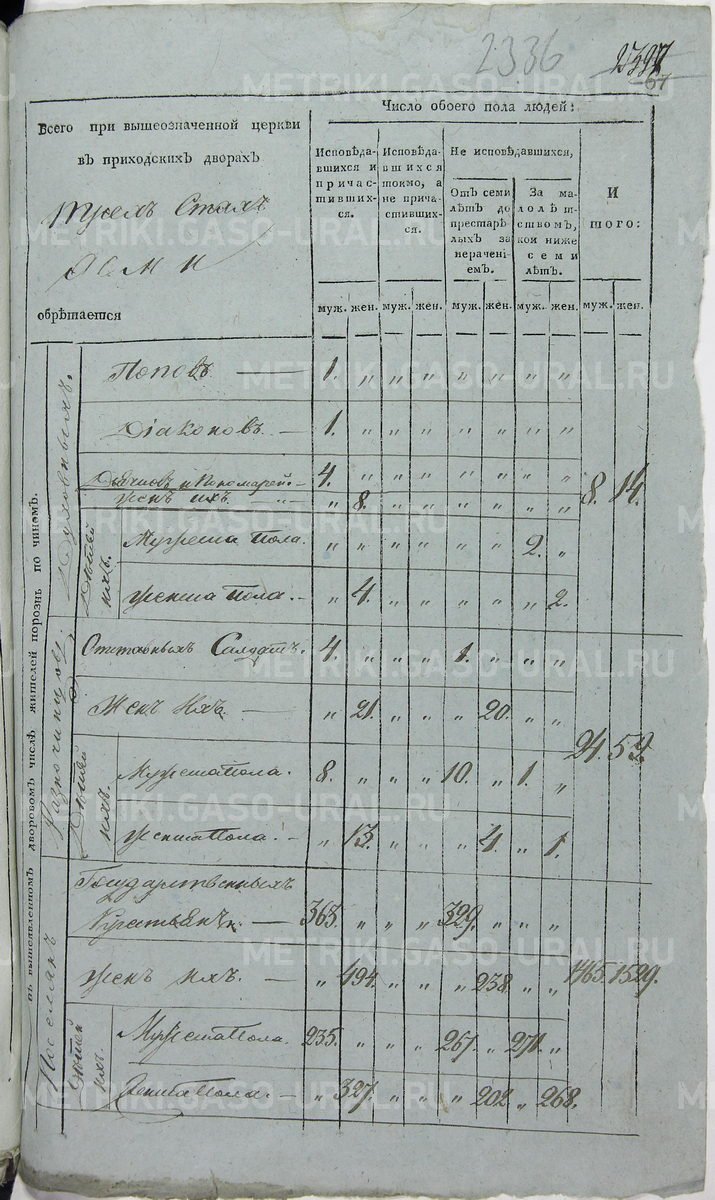 2336
67
Всего при вышеозначенной церкви
въ приходскихъ дворахъ
обрѣтается
Число обоего пола людей:
Исповѣдавшихся и причастившихся.
Исповѣдавшихся токмо, а не причастившихся.
Не исповѣдавшихся,
Отъ семи лѣтъ до престарѣлыхъ за нераченіемъ.
За малолѣтствомъ, кои ниже семи лѣтъ.
И того:
муж. жен. муж. жен. муж. жен. муж. жен. муж. жен.
въ вышеявленномъ дворовомъ числѣ жителей порознь по чиномъ.
Духовныхъ.
Поповъ 1. „ „ „ „ „ „ „
Діаконовъ 1. „ „ „ „ „ „ „
Дьячковъ и Пономарей 4. „ „ „ „ „ „ „
Женъ ихъ „ 8. „ „ „ „ „ „ 8. 14.
Дѣтей ихъ.
Мужеска Пола. „ „ „ „ „ „ 2. „
Женска Пола. „ 4. „ „ „ „ „ 2.
Разночинцовъ.
Отставныхъ Салдатъ. 4. „ „ „ 1. „ „ „
Женъ Ихъ „ 21. „ „ „ 20. „ „
24. 59.
Дѣтей ихъ.
Мужеска Пола. 8. „ „ „ 10. „ 1. „
Женска Пола. „ 13. „ „ „ 4. „ 1.
Поселянъ
Государственныхъ
Крестьянъ 363. „ „ „ 329. „ „ „
Женъ ихъ. „ 494. „ „ „ 238. „ „ 1465. 1529.
Дѣтей ихъ.
Мужеска Пола. 235. „ „ „ 267. „ 271. „
Женска Пола. „ 327. „ „ „ 202. „ 268.
METRIKI.GASO-URAL.RU